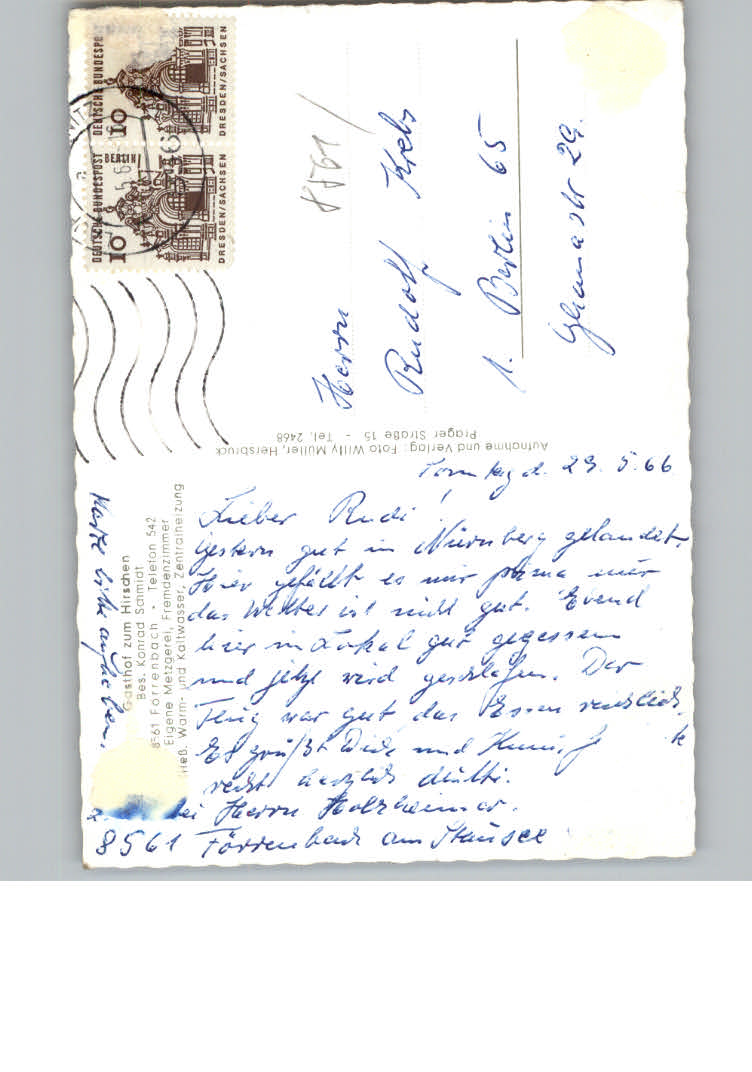 DEUTSCHE BUNDESPOST
10
DRESDEN/SACHSEN
DEUTSCHE BUNDESPOST BERLIN
10
DRESDEN/SACHSEN
8561
Herrn
Rudolf Krebs
1. Berlin 65
Ghanastr 29.
Aufnahme und Verlag: Foto Willy Müller, Hersbruck
Prager Straße 15 - Tel. 2468
Gasthof zum Hirschen
Bes. Konrad Schmidt
8561 Förrenbach - Telefon 542
Eigene Metzgerei, Fremdenzimmer
fließ. Warm- und Kaltwasser, Zentralheizung
Sonntag d. 29.5.66
Lieber Rudi!
Gestern gut in Nürnberg gelandet.
Hier gefällt es mir prima nur
das Wetter ist nicht gut. Ebend
hier im Lokal gut gegessen
und jetzt wird geschlafen. Der
Flug war gut, das Essen reichlich.
Es grüßt Dich und
recht herzlich Mutti.
bei Herrn Holzheimer.
8561 Förrenbach am Stausee
Karte bitte aufheben.